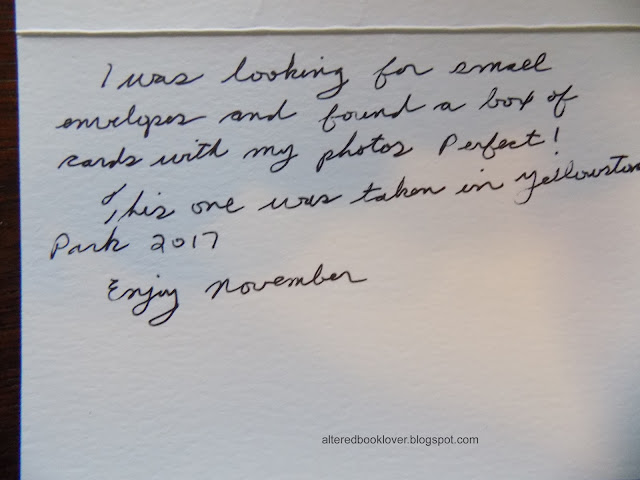 I was looking for small
envelopes and found a box of
cards with my photos Perfect!
This one was taken in Yellowston
Park 2017
Enjoy November
alteredbooklover.blogspot.com